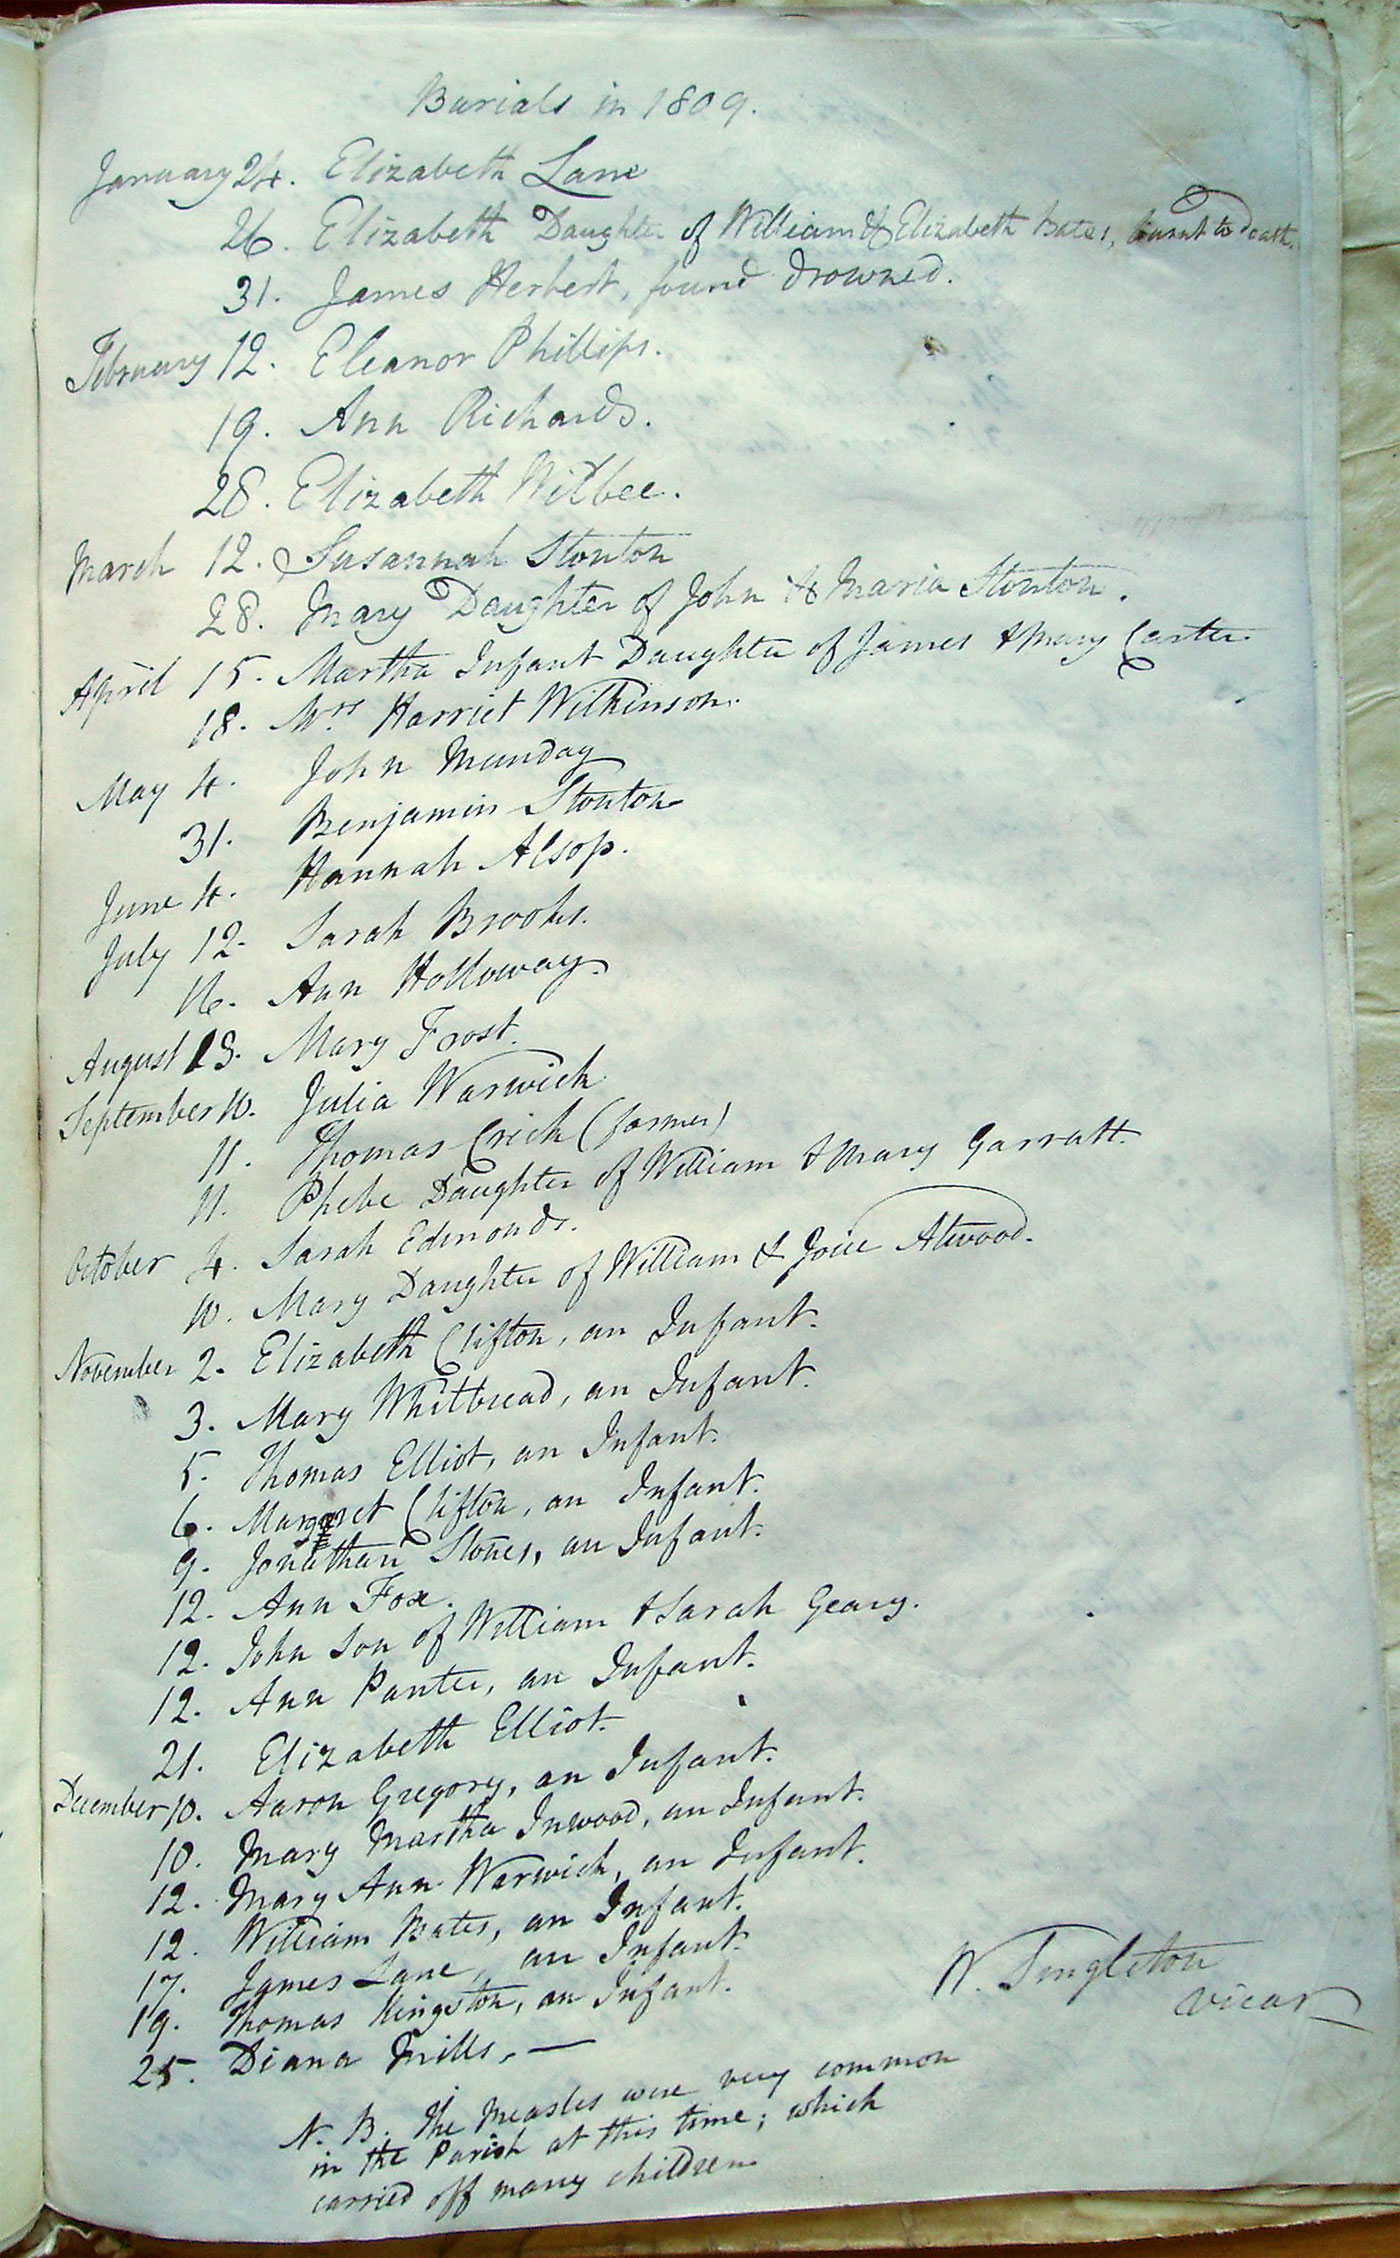 Burials in 1809.
January 24. Elizabeth Lane
26. Elizabeth Daughter of William & Elizabeth Bates, burnt to death.
31. James Herbert, found drowned.
February 12. Eleanor Phillips.
19. Ann Richards.
28. Elizabeth Wilbee.
March 12. Susannah Stonton
28. Mary Daughter of John & Maria Stonton.
April 15. Martha Infant Daughter of James & Mary Carter.
18. Mrs Harriet Wilkinson.
May 4. John Munday
31. Benjamin Stonton
June 4. Hannah Alsop.
July 12. Sarah Brooks.
16. Ann Holloway.
August 13. Mary Frost.
September 10. Julia Warwick
11. Thomas Crick (farmer)
11. Phebe Daughter of William & Mary Garratt.
October 4. Sarah Edmonds.
10. Mary Daughter of William & Joice Atwood.
November 2. Elizabeth Clifton, an Infant.
3. Mary Whitbread, an Infant.
5. Thomas Elliot, an Infant.
6. Margaret Clifton, an Infant.
9. Jonathan Stones, an Infant.
12. Ann Fox.
12. John Son of William & Sarah Geary.
12. Ann Panter, an Infant.
21. Elizabeth Elliot.
December 10. Aaron Gregory, an Infant.
10. Mary Martha Inwood, an Infant.
12. Mary Ann Warwick, an Infant.
12. William Bates, an Infant.
17. James Lane, an Infant.
19. Thomas Kingston, an Infant.
25. Diana Mills. —
W. Singleton
Vicar
N. B. The Measles were very common
in the Parish at this time; which
carried off many children.